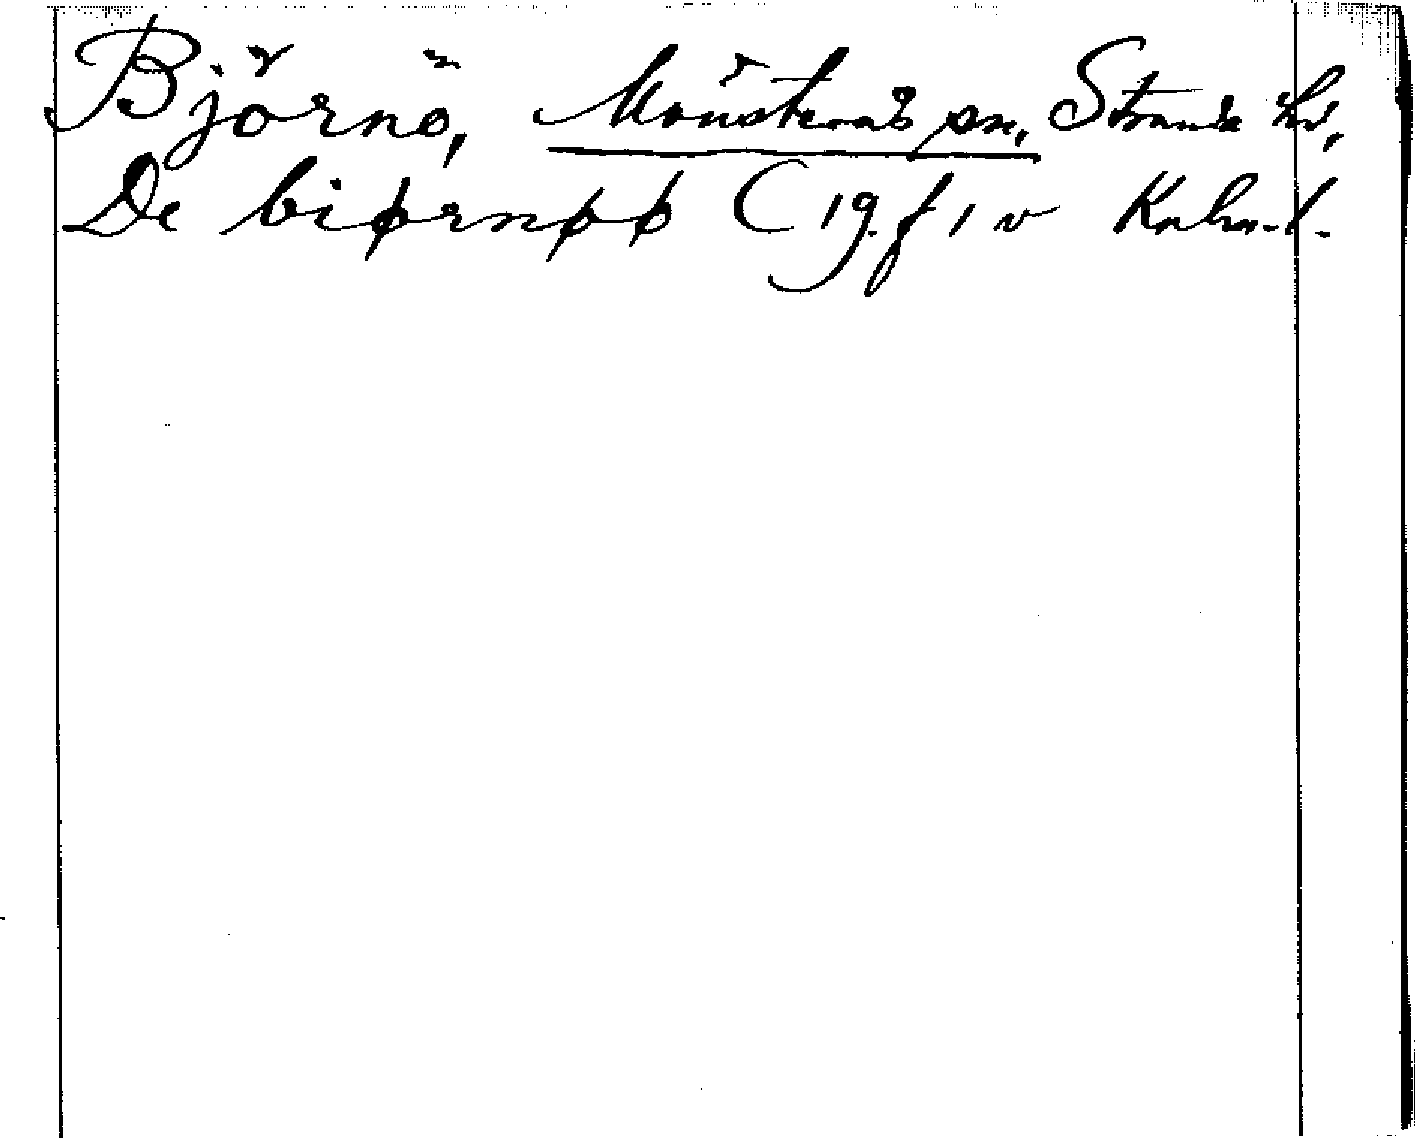 Björnö, Mönsterås sn, Stranda hd,
De biørnøø C 19 f 1 v Kalm. l.